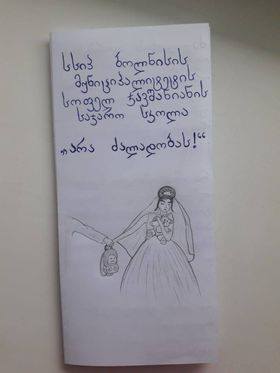 სსიპ ბოლნისის
მუნიციპალიტეტის
სოფელ ჯავშანიანის
საჯარო სკოლა
„არა ძალადობას!“